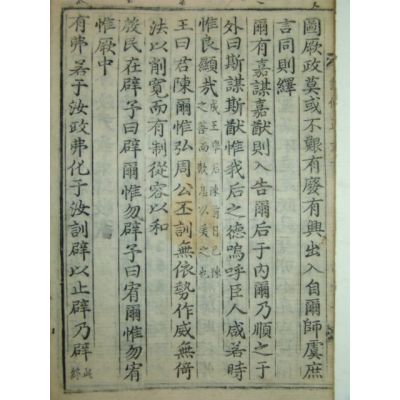 圖厥政莫或不艱有廢有興出入自爾師虞庶
言同則繹
爾有嘉謀嘉猷則入告爾后于內爾乃順之于
外曰斯謀斯猷惟我后之德嗚呼臣人咸若時
惟良顯哉成王擧君陳前日已陳
之善而歎息以美之也
王曰君陳爾惟弘周公丕訓無依勢作威無倚
法以削寬而有制從容以和
殷民在辟予曰辟爾惟勿辟予曰宥爾惟勿宥
惟厥中
有弗若于汝政弗化于汝訓辟以止辟乃辟此
終